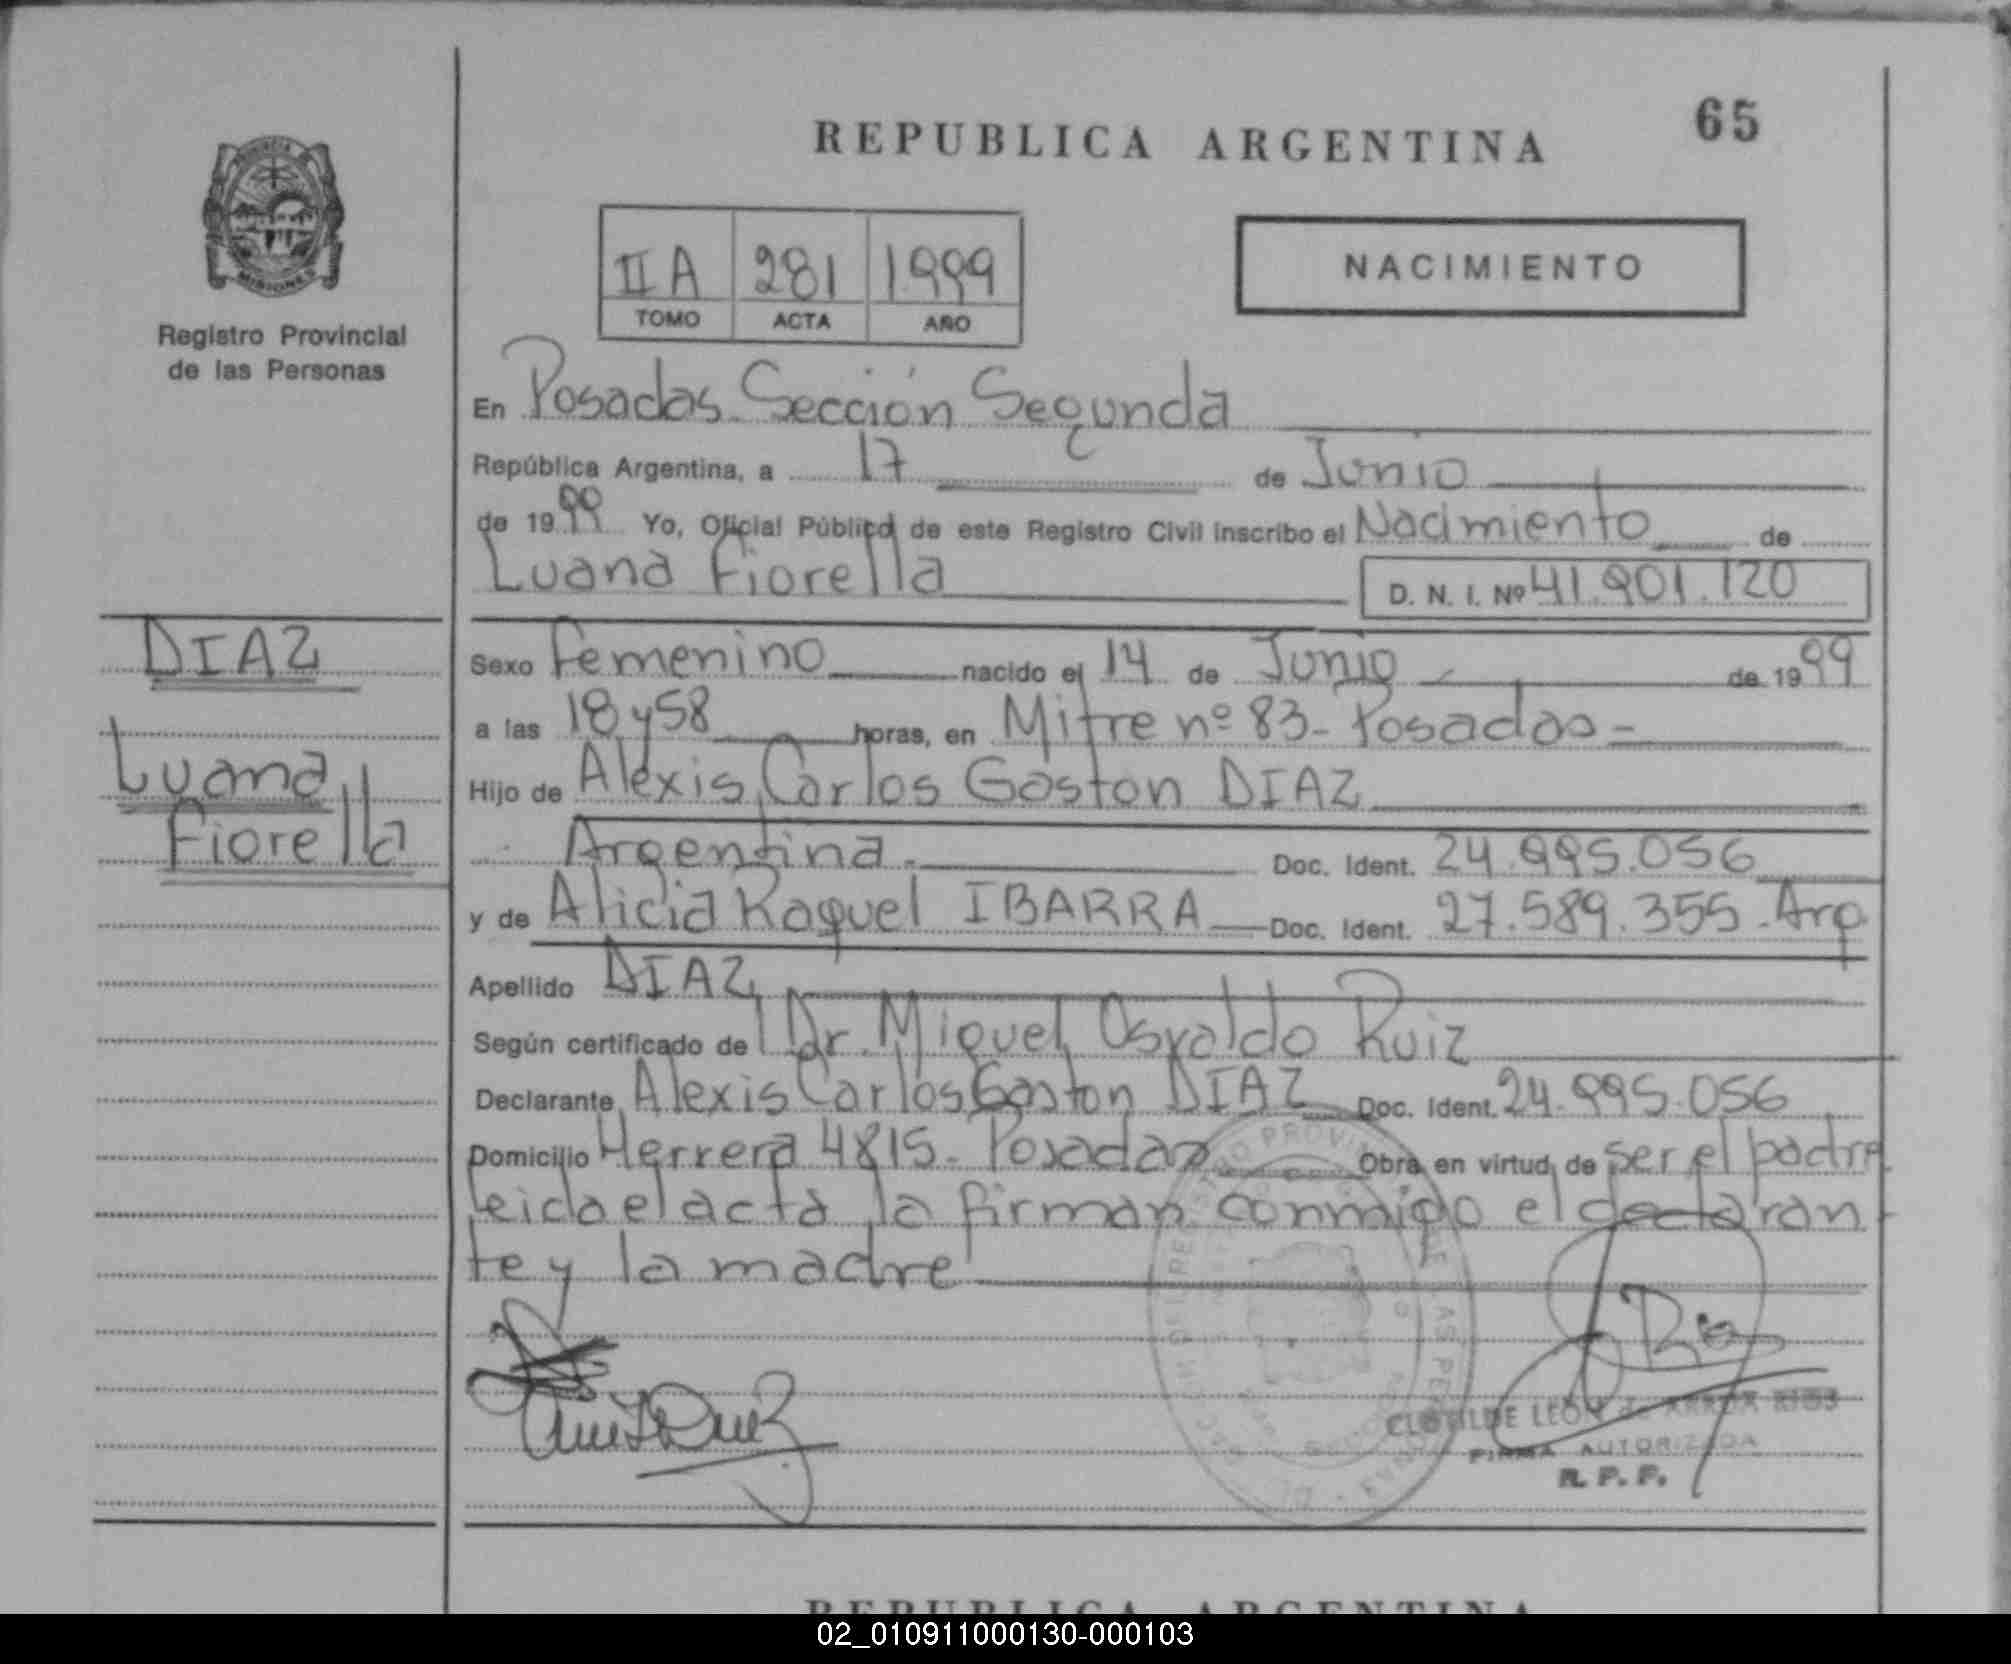 65
REPUBLICA ARGENTINA
PROVINCIA DE
MISIONES
Registro Provincial
de las Personas
II A 281 1999
TOMO ACTA AÑO
NACIMIENTO
En Posadas Sección Segunda
República Argentina, a 17 de Junio
de 1999 Yo, Oficial Público de este Registro Civil inscribo el Nacimiento de
Luana Fiorella D. N. I. Nº 41.901.120
DIAZ
Luana
Fiorella
Sexo Femenino nacido el 14 de Junio de 1999
a las 18 y 58 horas, en Mitre nº 83 - Posadas -
Hijo de Alexis Carlos Gaston DIAZ
Argentina. Doc. Ident. 24.995.056
y de Alicia Raquel IBARRA Doc. Ident. 27.589.355 - Arg
Apellido DIAZ
Según certificado de Dr. Miguel Osvaldo Ruiz
Declarante Alexis Carlos Gaston DIAZ Doc. Ident. 24.995.056
Domicilio Herrera 4815 - Posadas Obra en virtud de ser el padre
leida el acta la firman conmigo el declaran
te y la madre
CLOTILDE LEON de
FIRMA AUTORIZADA
R. P. P.
REPUBLICA ARGENTINA
02_010911000130-000103